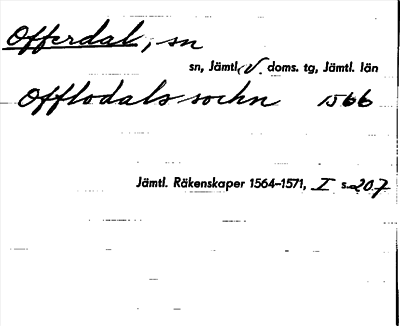 Offerdal, sn
sn, Jämtl. v. doms. tg, Jämtl. län
Offlodals sochn 1566
Jämtl. Räkenskaper 1564–1571, I s. 207